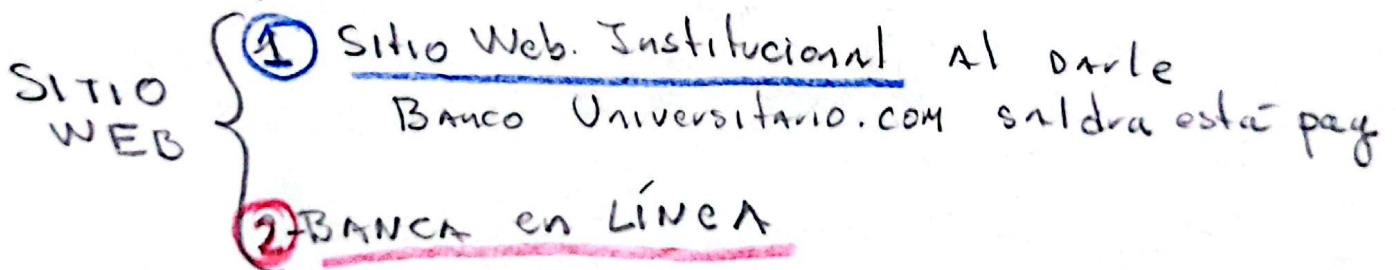 SITIO WEB
1 Sitio Web. Institucional Al Darle
Banco Universitario.com saldra está pag
2-BANCA en LÍNEA